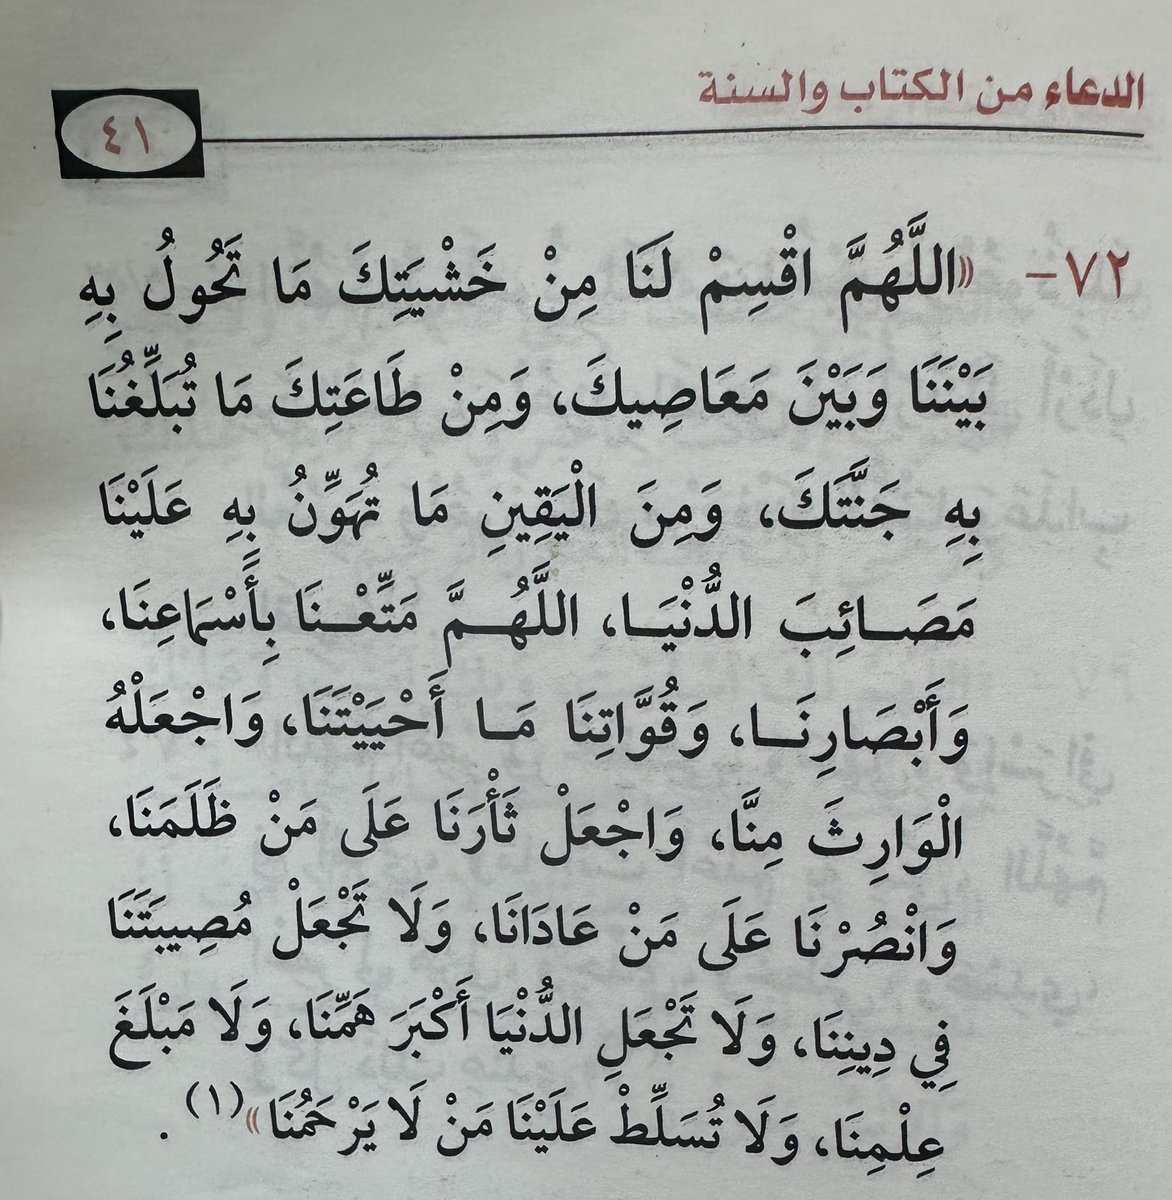 الدعاء من الكتاب والسنة
٤١
٧٢- «اللَّهُمَّ اقْسِمْ لَنَا مِنْ خَشْيَتِكَ مَا تَحُولُ بِهِ
بَيْنَنَا وَبَيْنَ مَعَاصِيكَ، وَمِنْ طَاعَتِكَ مَا تُبَلِّغُنَا
بِهِ جَنَّتَكَ، وَمِنَ الْيَقِينِ مَا تُهَوِّنُ بِهِ عَلَيْنَا
مَصَـائِبَ الدُّنْيَـا، اللَّهُـمَّ مَتِّعْـنَا بِأَسْمَاعِنَا،
وَأَبْصَارِنَـا، وَقُوَّاتِنَا مَـا أَحْيَيْتَنَا، وَاجْعَلْهُ
الْوَارِثَ مِنَّا، وَاجْعَلْ ثَأْرَنَا عَلَى مَنْ ظَلَمَنَا،
وَانْصُرْنَا عَلَى مَنْ عَادَانَا، وَلَا تَجْعَلْ مُصِيبَتَنَا
فِي دِينِنَا، وَلَا تَجْعَلِ الدُّنْيَا أَكْبَرَ هَمِّنَا، وَلَا مَبْلَغَ
عِلْمِنَا، وَلَا تُسَلِّطْ عَلَيْنَا مَنْ لَا يَرْحَمُنَا»(١).